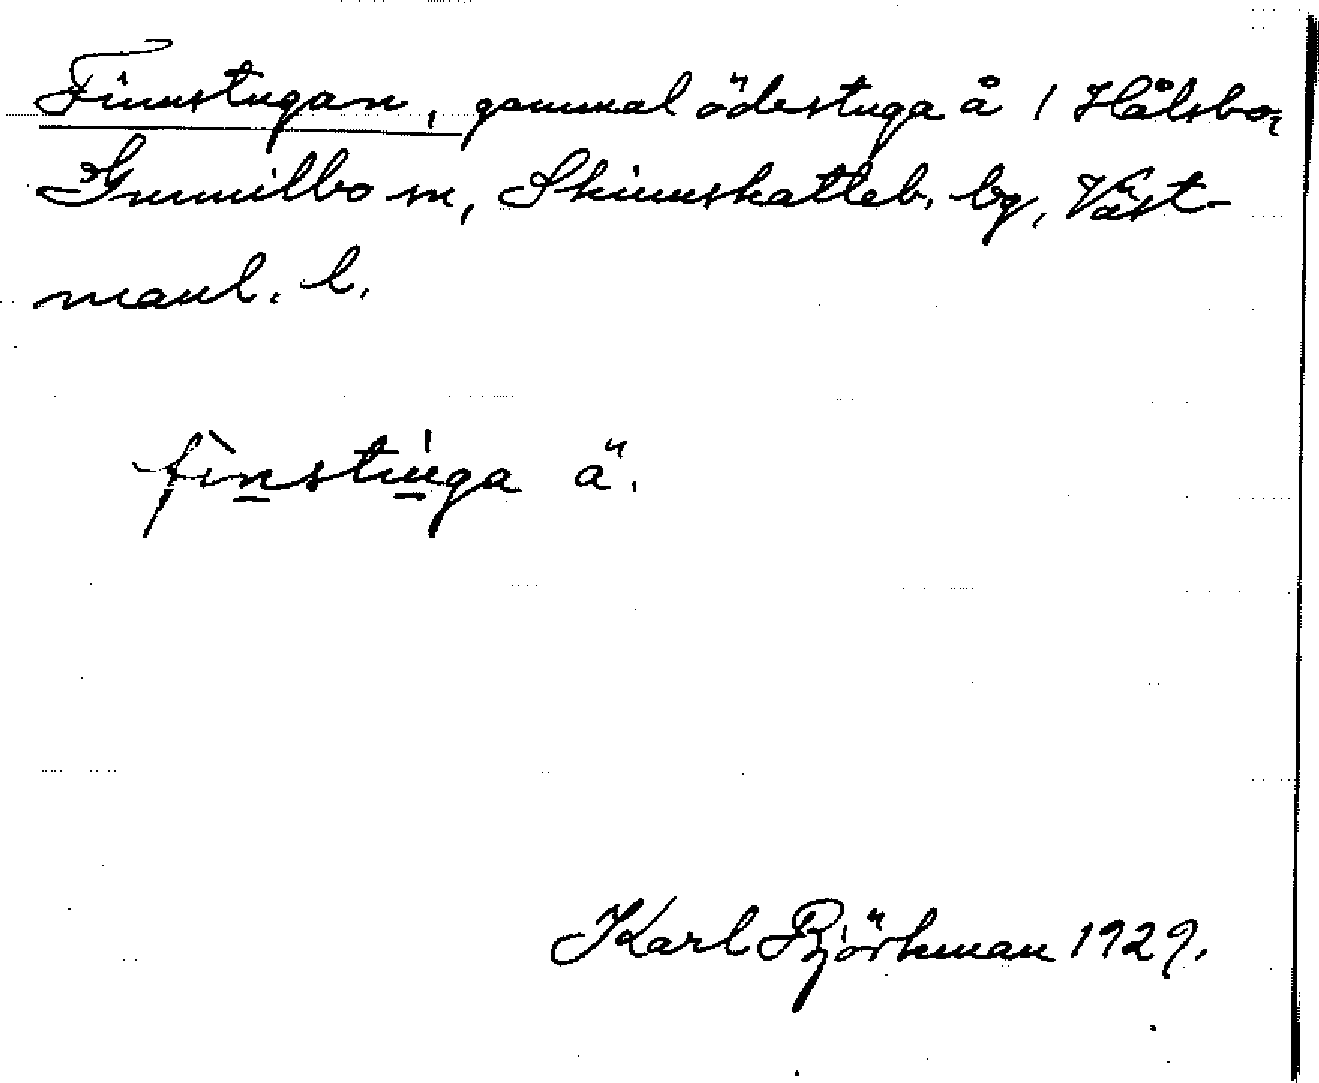 Finnstugan, gammal ödestuga å 1 Hålsbo,
Gunnilbo sn, Skinnskatteb. bg, Väst-
manl. l.
fìnstu̱ga ä.
Karl Björkman 1929.